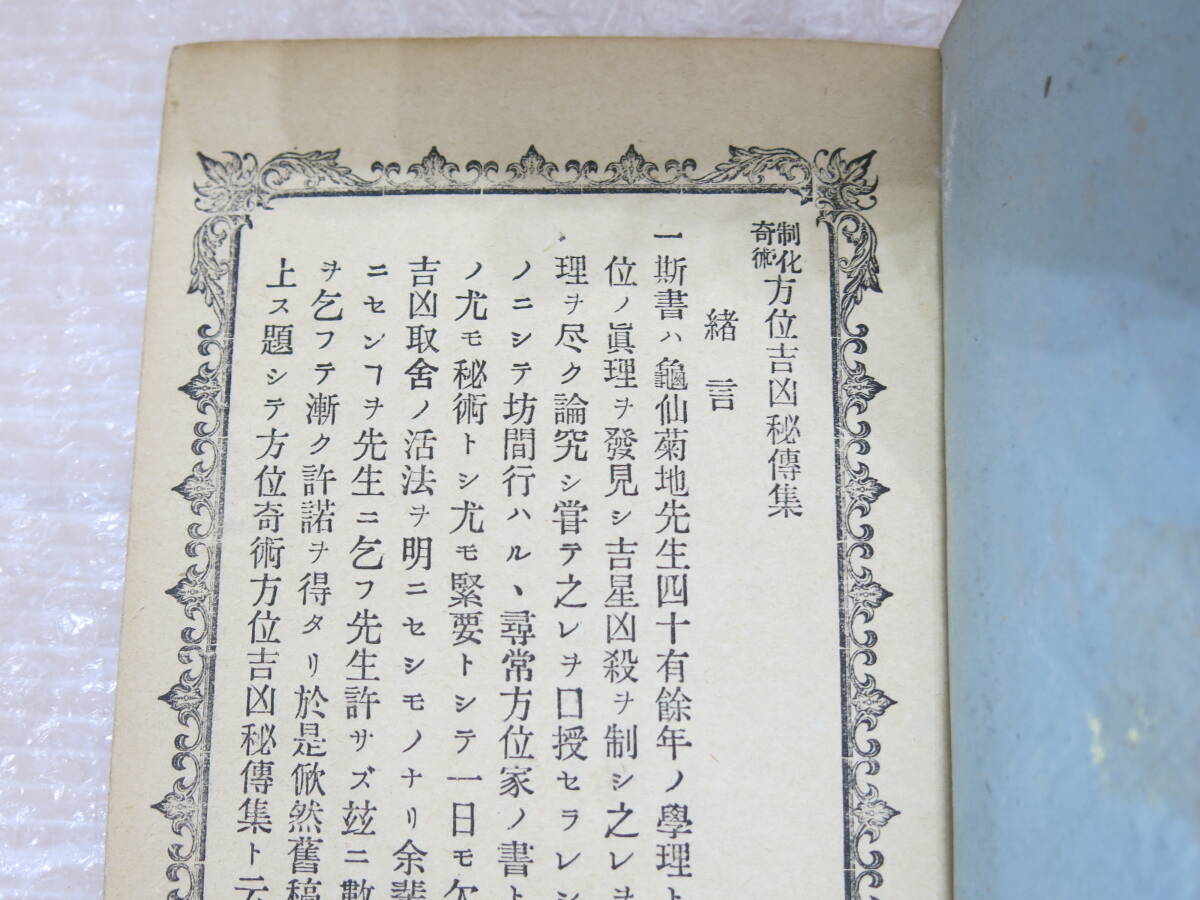 制化奇術方位吉凶秘傳集
緒言
一斯書ハ龜仙菊地先生四十有餘年ノ學理ト
位ノ眞理ヲ發見シ吉星凶殺ヲ制シ之レヲ
理ヲ尽ク論究シ甞テ之レヲ口授セラレシ
ノニシテ坊間行ハルヽ尋常方位家ノ書ト
ノ尤モ秘術トシ尤モ緊要トシテ一日モ欠
吉凶取舍ノ活法ヲ明ニセシモノナリ余輩
ニセンヿヲ先生ニ乞フ先生許サズ玆ニ數
ヲ乞フテ漸ク許諾ヲ得タリ於是俶然舊稿
上ス題シテ方位奇術方位吉凶秘傳集ト云